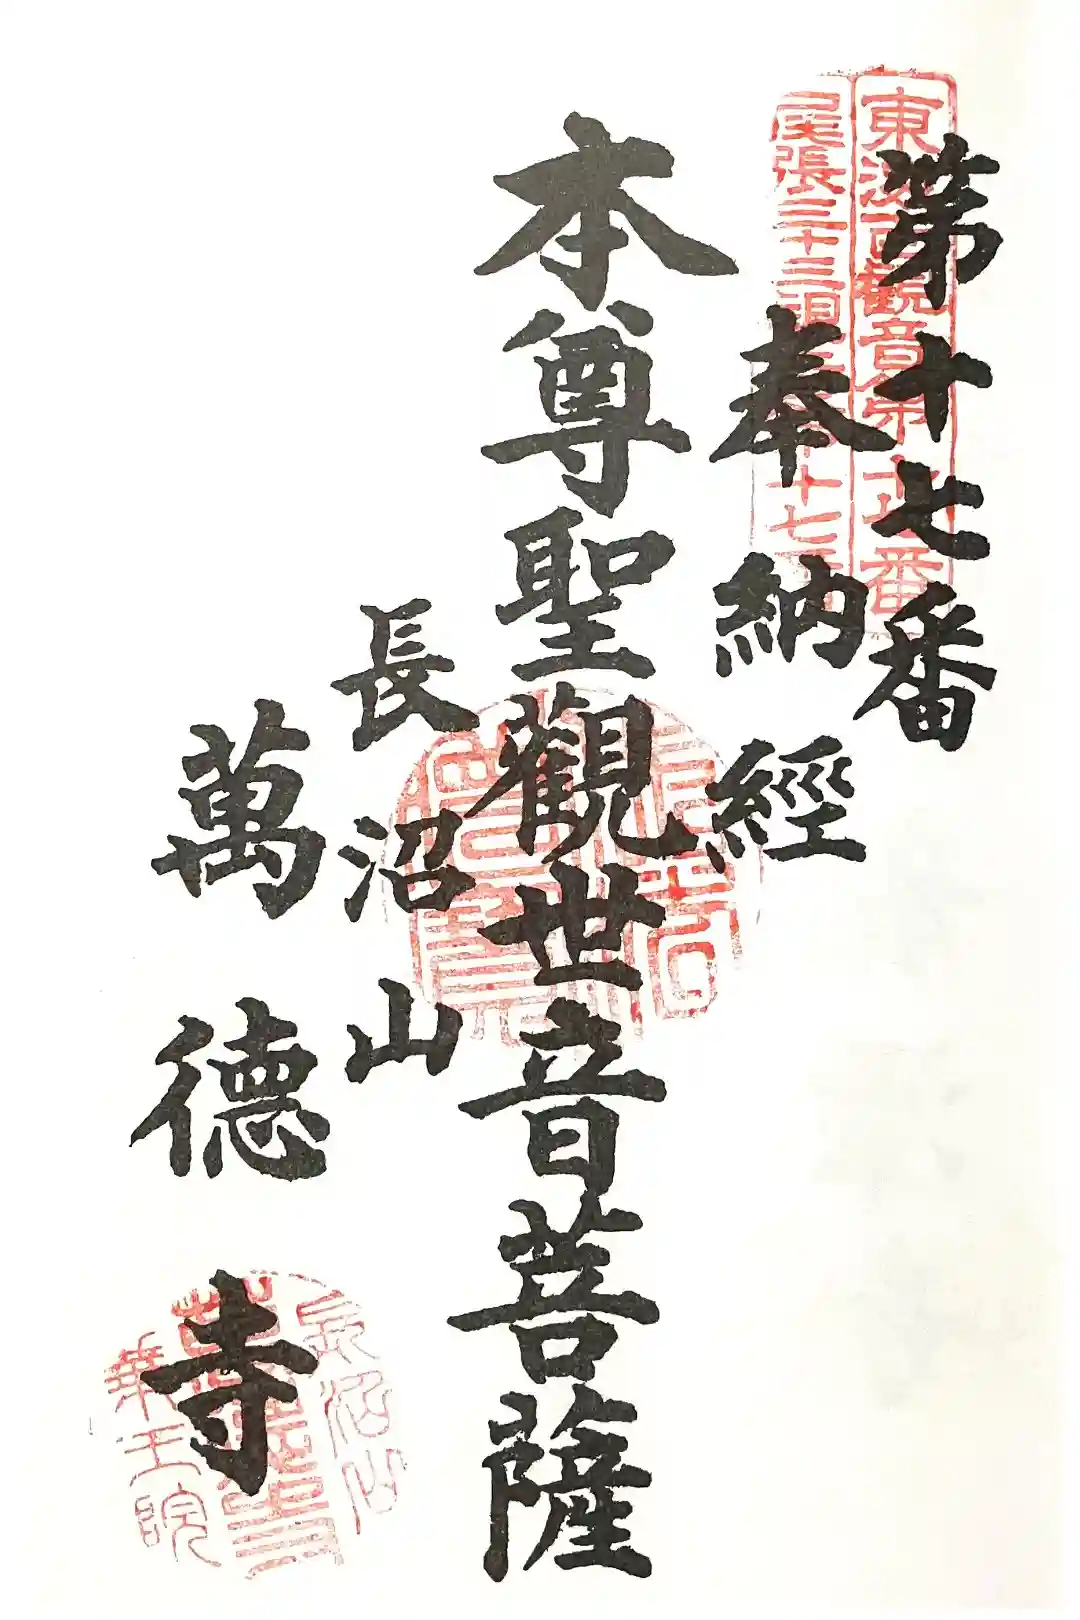 第十七番
東海百観音第十七番
尾張三十三観音第十七番
奉納經
本尊聖觀世音菩薩
長沼山
萬德寺
長沼山
萬德寺
華王院